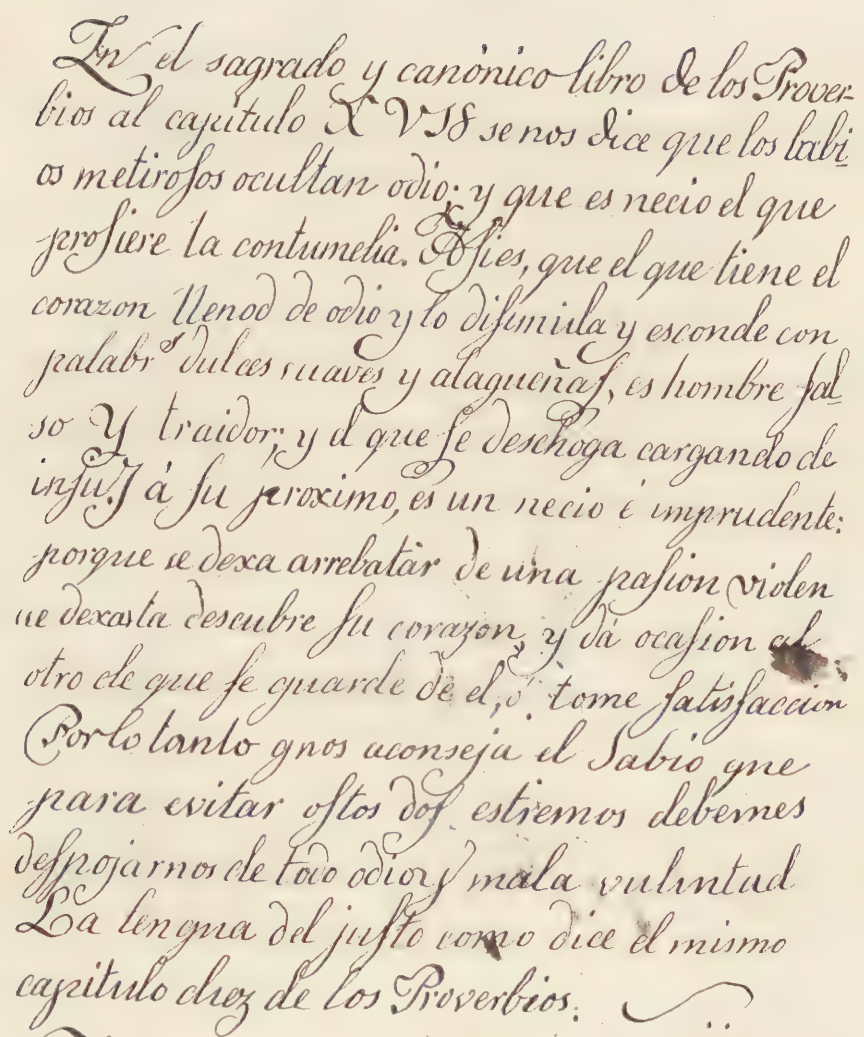 En el sagrado y canónico libro de los Prover-
bios al capítulo XVIII se nos dice que los labi-
os metirosos ocultan odio; y que es necio el que
profiere la contumelia. Asi es, que el que tiene el
corazon llenod de odio y lo disimula y esconde con
palabr.s dulces suaves y alagueñas, es hombre fal-
so Y traidor; y el que se desehoga cargando de
á su proximo, es un necio é imprudente:
porque se dexa arrebatár de una pasion violen
descubre su corazon, y dá ocasion al
otro de que se guarde de el, ó tome satisfaccion
Por lo tanto qnos aconseja el Sabio que
para evitar ostos dos estremos debemes
despojarnos de todo odio y mala vuluntad
La lengua del justo como dice el mismo
capitulo diez de los Proverbios.